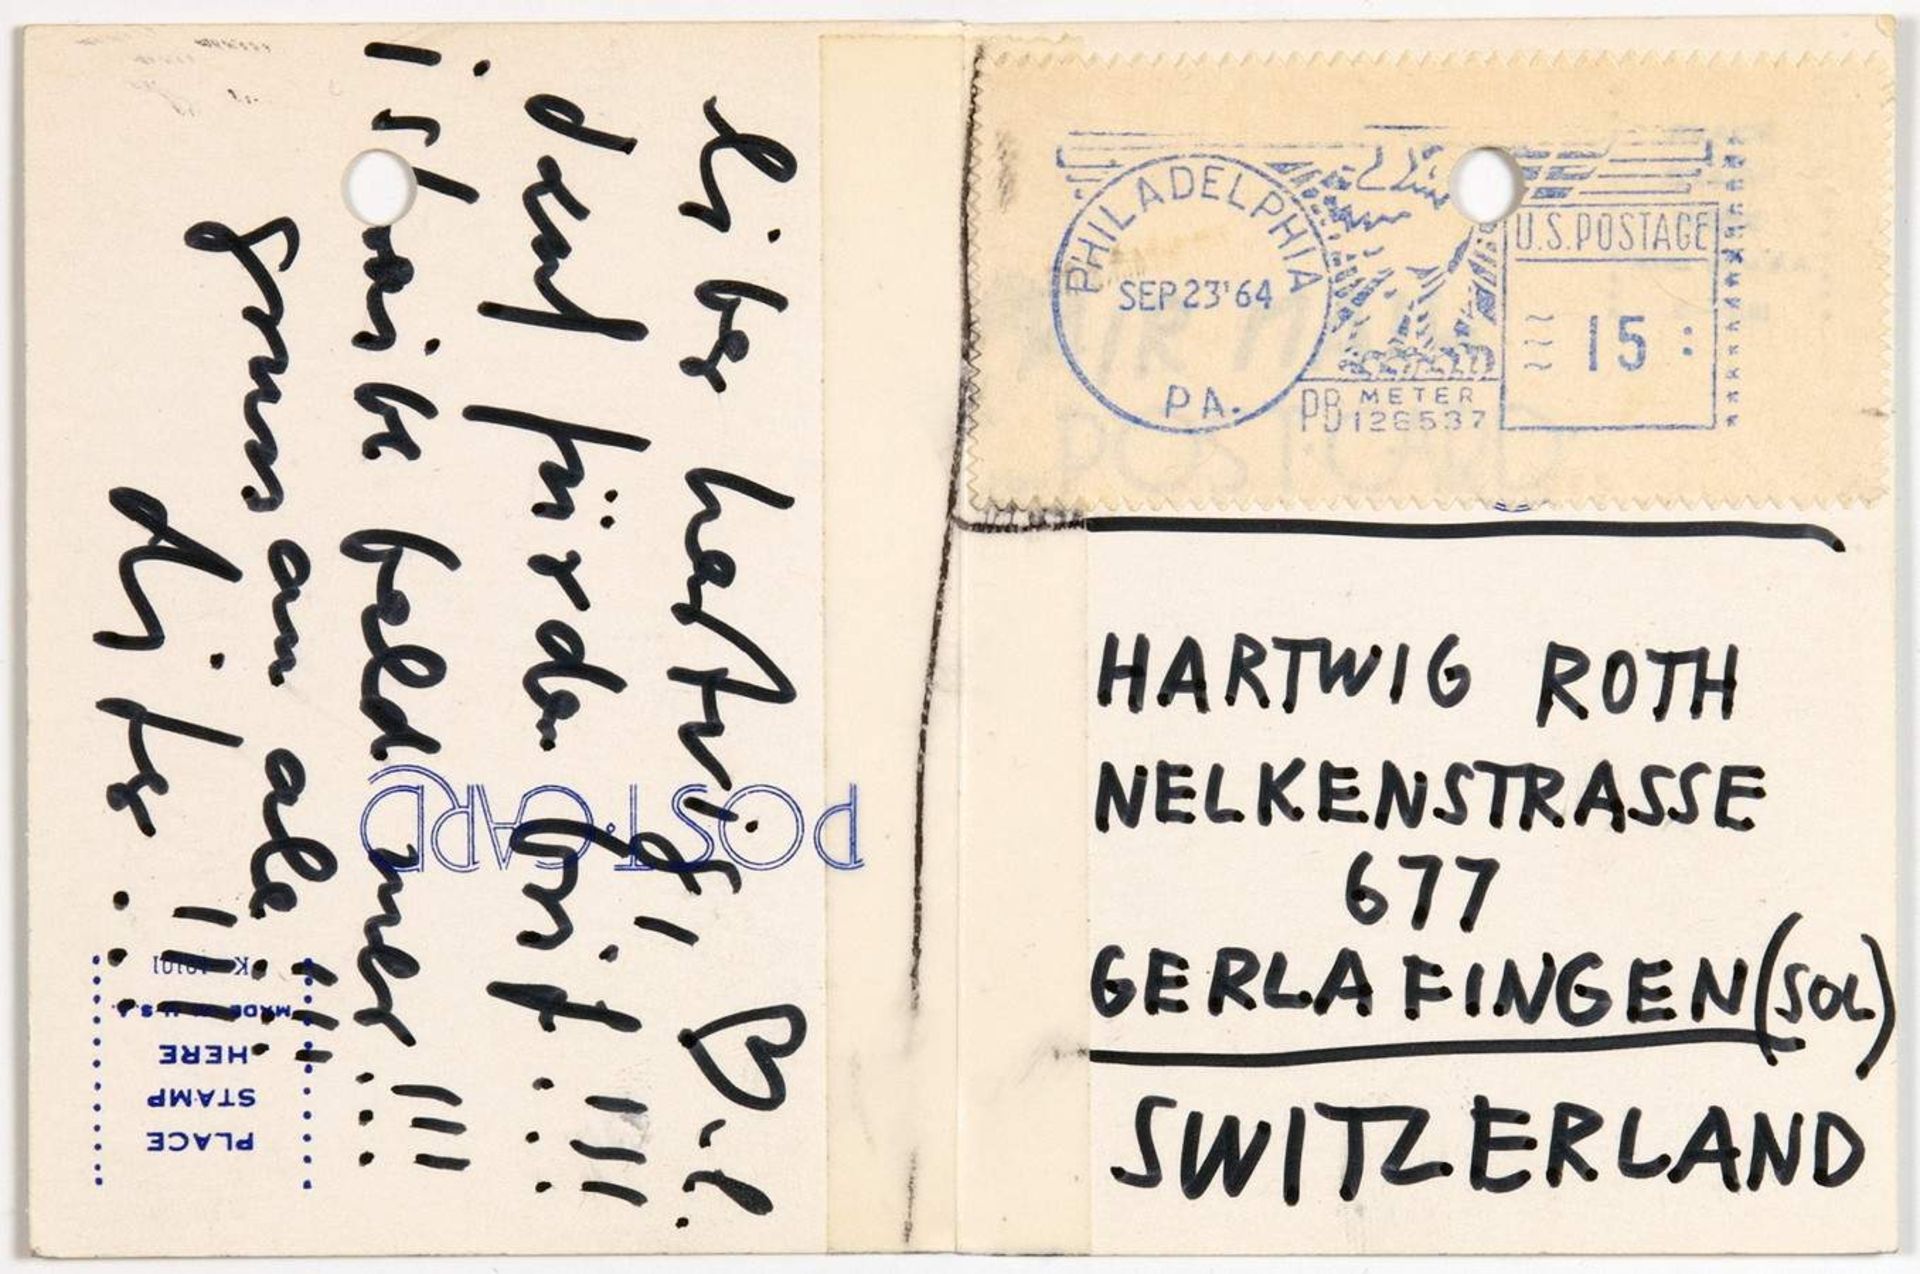 liber hartwig, ♡-l.
dank für den brif !!!
i shraibe bald mer !!!
gruss an ale !!!
diter !!!
POST CARD
PLACE
STAMP
HERE
MADE IN U.S.A.
PHILADELPHIA
SEP 23 '64
PA.
U.S. POSTAGE
15
PB METER
HARTWIG ROTH
NELKENSTRASSE
677
GERLAFINGEN (SOL)
SWITZERLAND